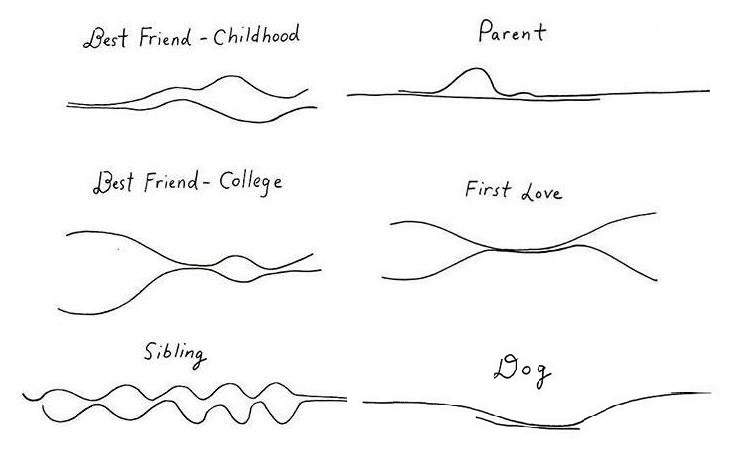 Best Friend - Childhood
Parent
Best Friend - College
First Love
Sibling
Dog